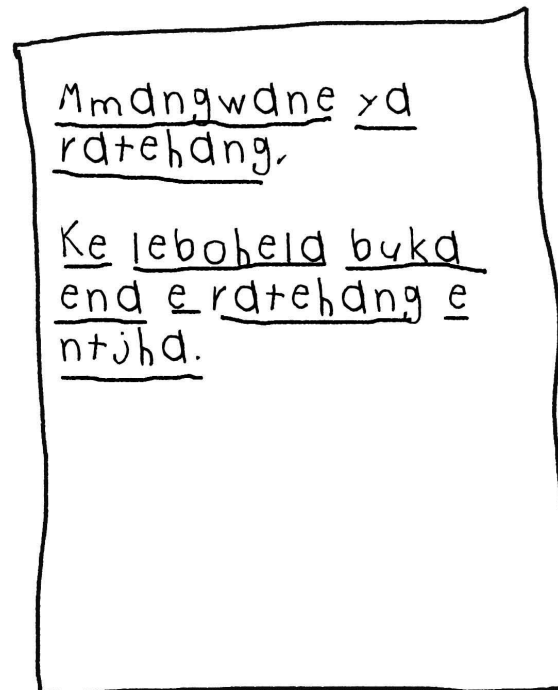 Mmangwane ya
ratehang,
Ke lebohela buka
ena e ratehang e
ntjha.